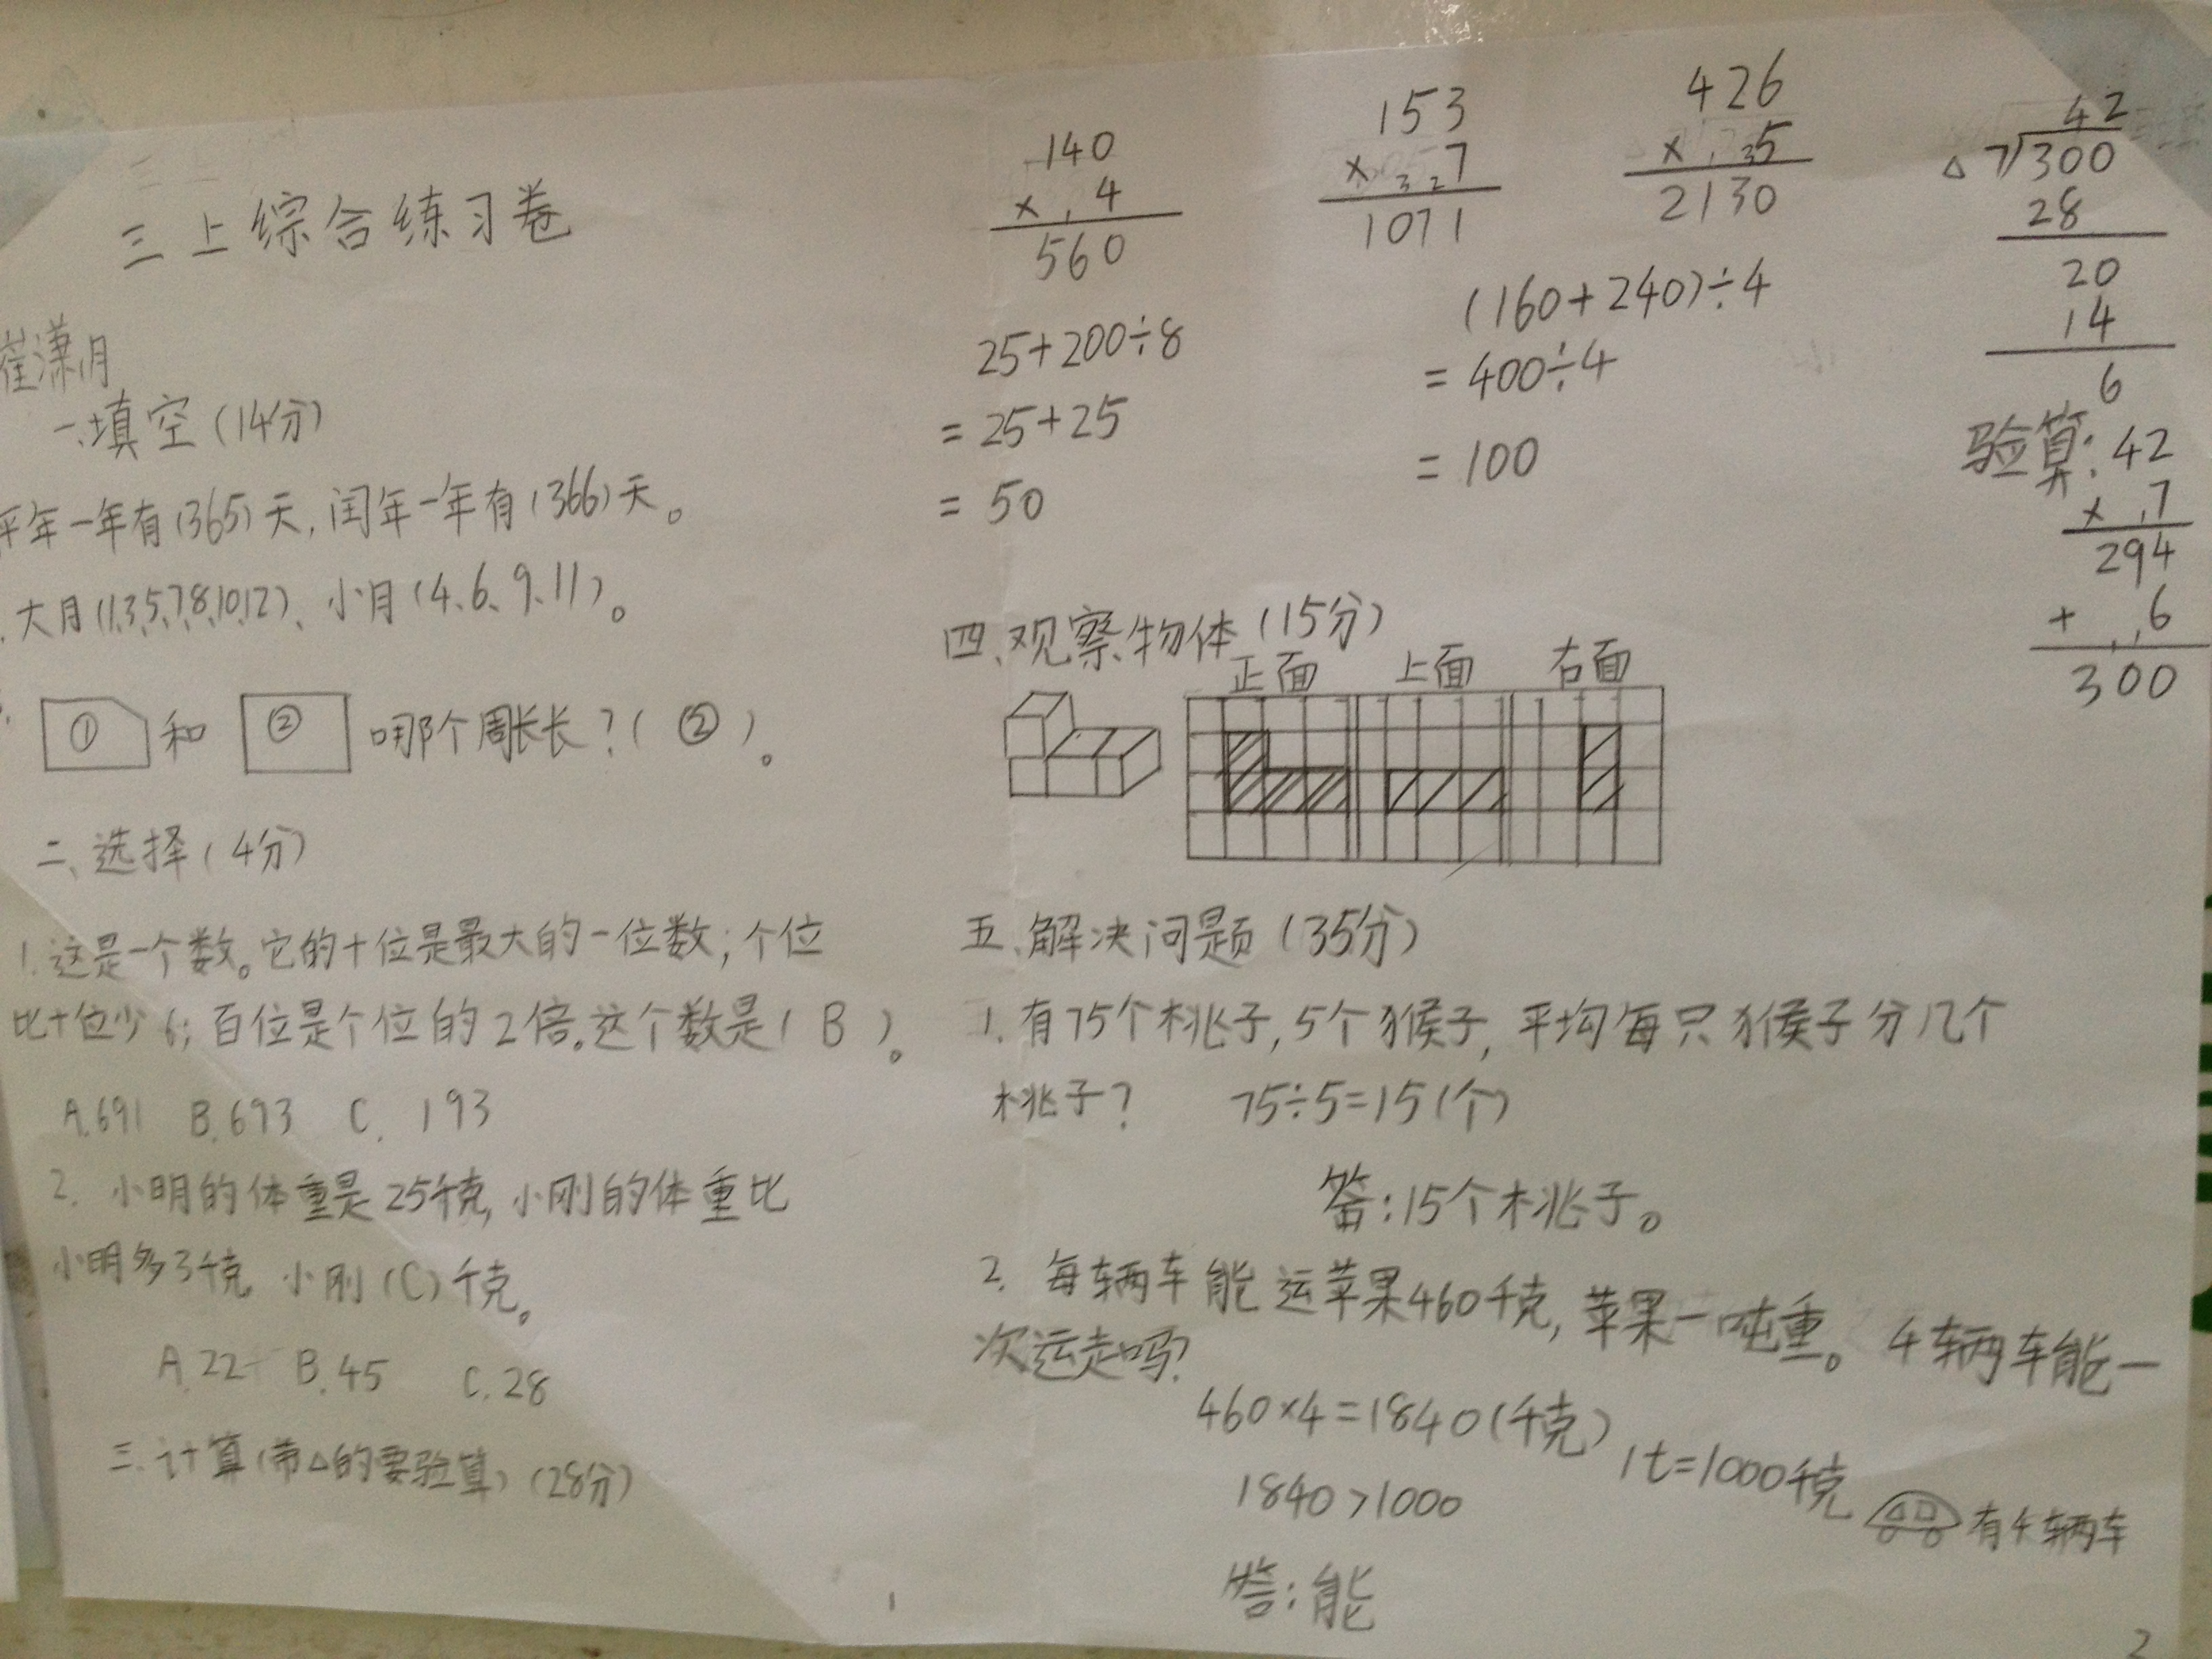 三上综合练习卷
崔潇月
一、填空(14分)
平年一年有(365)天,闰年一年有(366)天。
大月(1、3、5、7、8、10、12)、小月(4、6、9、11)。
① 和 ② 哪个周长长?( ② )。
二、选择(4分)
1.这是一个数。它的十位是最大的一位数;个位
比十位少6;百位是个位的2倍。这个数是( B )。
A.691 B.693 C. 193
2. 小明的体重是25千克,小刚的体重比
小明多3千克 小刚(C)千克。
A.22 B.45 C.28
三.计算(带△的要验算)(28分)
1
140
× 4
560
153
× 7
3 2
1071
426
× 5
1 3
2130
25+200÷8
= 25+25
= 50
(160+240)÷4
= 400÷4
= 100
42
△ 7)300
28
20
14
6
验算:42
× 7
294
+ 6
300
四、观察物体(15分)
正面 上面 右面
五、解决问题(35分)
1.有75个桃子,5个猴子,平均每只猴子分几个
桃子? 75÷5=15(个)
答:15个桃子。
2. 每辆车能运苹果460千克,苹果一吨重。4辆车能一
次运走吗?
460×4=1840(千克) 1t=1000千克
1840>1000
有4辆车
答:能
2